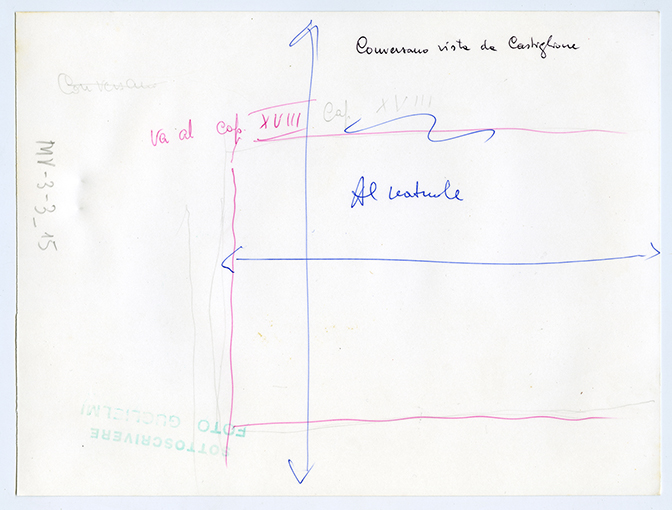 Conversano vista da Castiglione
Conversano
Va al Cap. XVIII
Cap. XVIII
Al naturale
MV-3-3_15
SOTTOSCRIVERE
FOTO GUGLIELMI